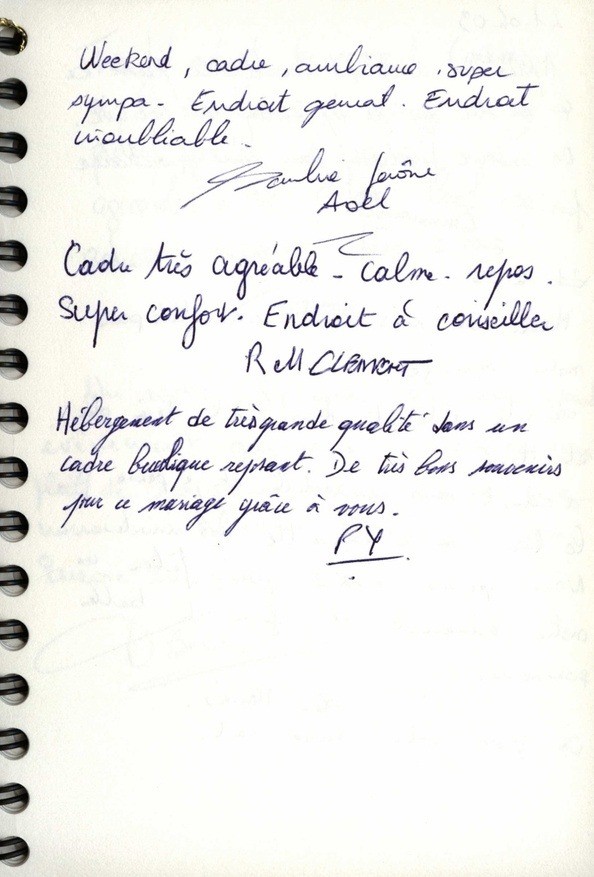 Weekend, cadre, ambiance, super
sympa - Endroit genial. Endroit
inoubliable.
Jérôme
Cadre très agréable - calme - repos.
Super confort. Endroit à conseiller
R et M CLEMENT
Hébergement de très grande qualité dans un
cadre bucolique reposant. De très bons souvenirs
pour ce mariage grâce à vous.
PY